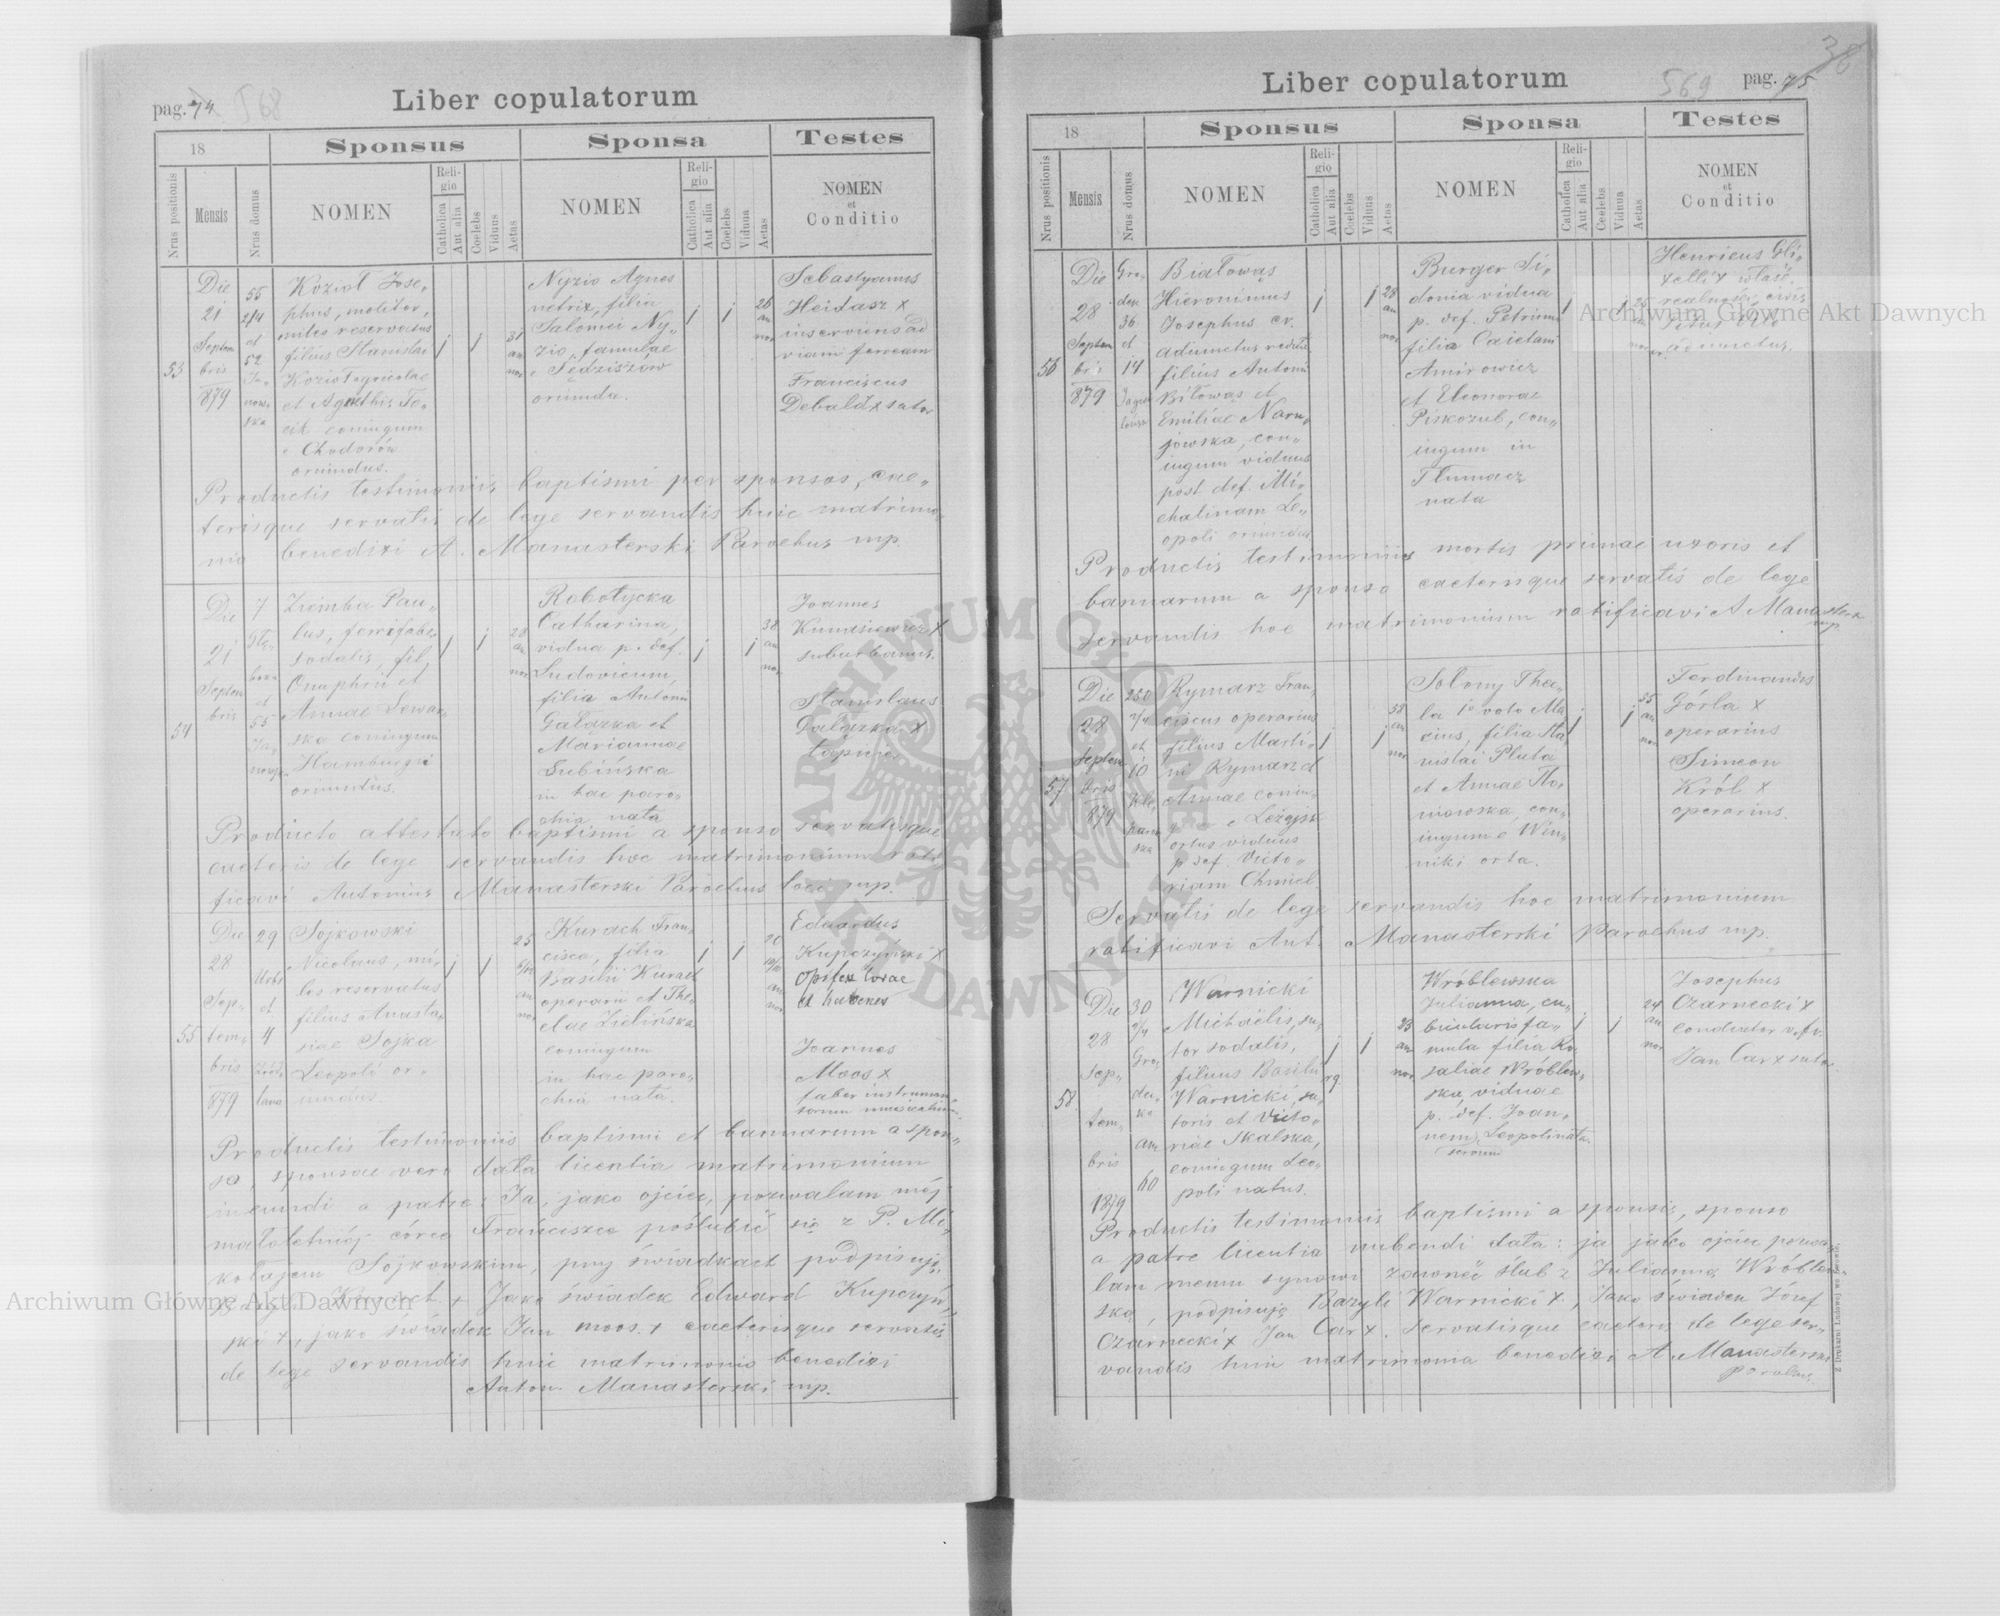 pag. 74 568
Liber copulatorum
18
Sponsus
Sponsa
Testes
Nrus positionis
Mensis
Nrus domus
NOMEN
Religio
Catholica
Aut alia
Coelebs
Viduus
Aetas
NOMEN
Religio
Catholica
Aut alia
Coelebs
Vidua
Aetas
NOMEN
et
Conditio
53
Die
21
Septem
bris
879
55
2/4
et
52
Ja„
nows„
ska
Kozioł Jose„
phus, molitor,
miles reservatus
filius Stanislai
Kozioł agricolae
et Agathis
coniugum
e Chodorów
oriundus.
31
an
nor
Nyzio Agnes
netrix, filia
Salomei Ny„
zio, famulae
e Sędziszów
oriunda.
26
an
nor
Sebastyanus
Heidasz x
inserviens ad
viam ferream
Franciscus
Debald x sutor
Productis testimoniis baptismi per sponsos, cae„
terisque servatis de lege servandis huic matrimo„
nio benedixi A. Manasterski Parochus mp.
54
Die
21
Septem
bris
7
et
55
Ja„
nows„
Ziemba Pau„
lus, ferrifaber
sodalis, fil.
Onuphrii et
Annae Lewan„
ska coniugum
Hamburgi
oriundus.
28
an
nor
Robotycka
Catharina,
vidua p. def.
Ludovicum,
filia Antonii
Gałązka et
Mariannae
Lubińska
in hac paro„
chia nata
38
an
nor
Joannes
Kunasiewicz x
suburbanus.
Stanislaus
Gałązka x
Producto attestato baptismi a sponso servatisque
caeteris de lege servandis hoc matrimonium rati„
ficavi Antonius Manasterski Parochus loci mp.
55
Die
28
Sep„
tem„
bris
879
29
Urbs
et
4
lana
Sojkowski
Nicolaus, mi„
les reservatus
filius Anasta„
siae Sojka
Leopoli or„
iundus.
25
an
nor
Kurach Fran„
cisca, filia
Basilii Kurach
operarii et The„
clae Zielińska
coniugum
in hac paro„
chia nata.
20
an
nor
Eduardus
Kupczyński x
Opifex lorae
et habenes
Joannes
Moos x
faber instrumen„
torum musicalium.
Productis testimoniis baptismi et bannarum a spon„
so, sponsae vero data licentia matrimonium
ineundi a patre: Ja, jako ojciec, pozwalam mej
małoletniej córce Franciszce poślubić się z P. Mi„
kołajem Sojkowskim, przy świadkach podpisuję
Kurach + Jako świadek Edward Kupczyń„
ski +, jako świadek Jan Moos + caeterisque servatis
de lege servandis huic matrimonio benedixi
Anton Manasterski mp.
38
569 pag. 75
Liber copulatorum
18
Sponsus
Sponsa
Testes
Nrus positionis
Mensis
Nrus domus
NOMEN
Religio
Catholica
Aut alia
Coelebs
Viduus
Aetas
NOMEN
Religio
Catholica
Aut alia
Coelebs
Vidua
Aetas
NOMEN
et
Conditio
56
Die
28
Septem
bris
879
Gro„
dec
36
et
14
Białowąs
Hieronimus
Josephus
adiunctus
filius Antonii
Biłowąs et
Emiliae Naru„
jowska, con„
iugum viduus
post def. Mi„
chalinam Le„
opoli oriundus
28
an
nor
Burger Si„
donia vidua
p. def. Petrum
filia Caietani
Amirowicz
et Eleonorae
Piskozub, con„
iugum in
Tłumacz
nata
25
Henricus Gli„
xelli x
realności
adiunctus.
Productis testimoniis mortis primae uxoris et
bannarum a sponso caeterisque servatis de lege
servandis hoc matrimonium ratificavi A Manasterski
mp.
57
Die
28
Septem
bris
879
250
2/4
et
10
Kle„
parow
ska
Rymarz Fran„
ciscus operarius
filius Marti„
ni Rymarz et
Annae coniu„
e Leżajsk
ortus viduus
p. def. Victo„
riam Chmiel.
38
an
nor
Sołomy The„
la 1o voto Ma„
cius, filia Sta„
nislai Pluta
et Annae Flo„
niowska, con„
iugum e Win„
niki orta.
35
an
nor
Ferdinandus
Górla x
operarius
Simeon
Król x
operarius.
Servatis de lege servandis hoc matrimonium
ratificavi Ant. Manasterski Parochus mp.
58
Die
28
Sep„
tem„
bris
1879
30
2/4
Gro„
dec„
ka
60
Warnicki
Michaëlis, su„
tor sodalis,
filius Basilii
Warnicki, su„
toris et Victo„
riae Skalska,
coniugum Leo„
poli natus.
23
an
nor
Wróblewska
Julianna, cu„
bicularis fa„
mula filia Ro„
saliae Wróblew„
ska, viduae
p. def. Joan„
nem, Leopoli nata.
24
an
nor
Josephus
Czarnecki x
conductor
Jan Car x sutor
Productis testimoniis baptismi a sponsis, sponso
a patre licentia nubendi data: ja jako ojciec pozwa„
lam memu synowi zawrzeć ślub z Julianną Wróblew„
ską, podpisuję Bazyli Warnicki x, Jako świadek Józef
Czarnecki x Jan Car x. Servatisque caeteris de lege ser„
vandis huic matrimonio benedixi A. Manasterski
parochus.
Z Drukarni Ludowej we Lwowie.
Archiwum Główne Akt Dawnych
Archiwum Główne Akt Dawnych
ARCHIWUM GŁÓWNE AKT DAWNYCH